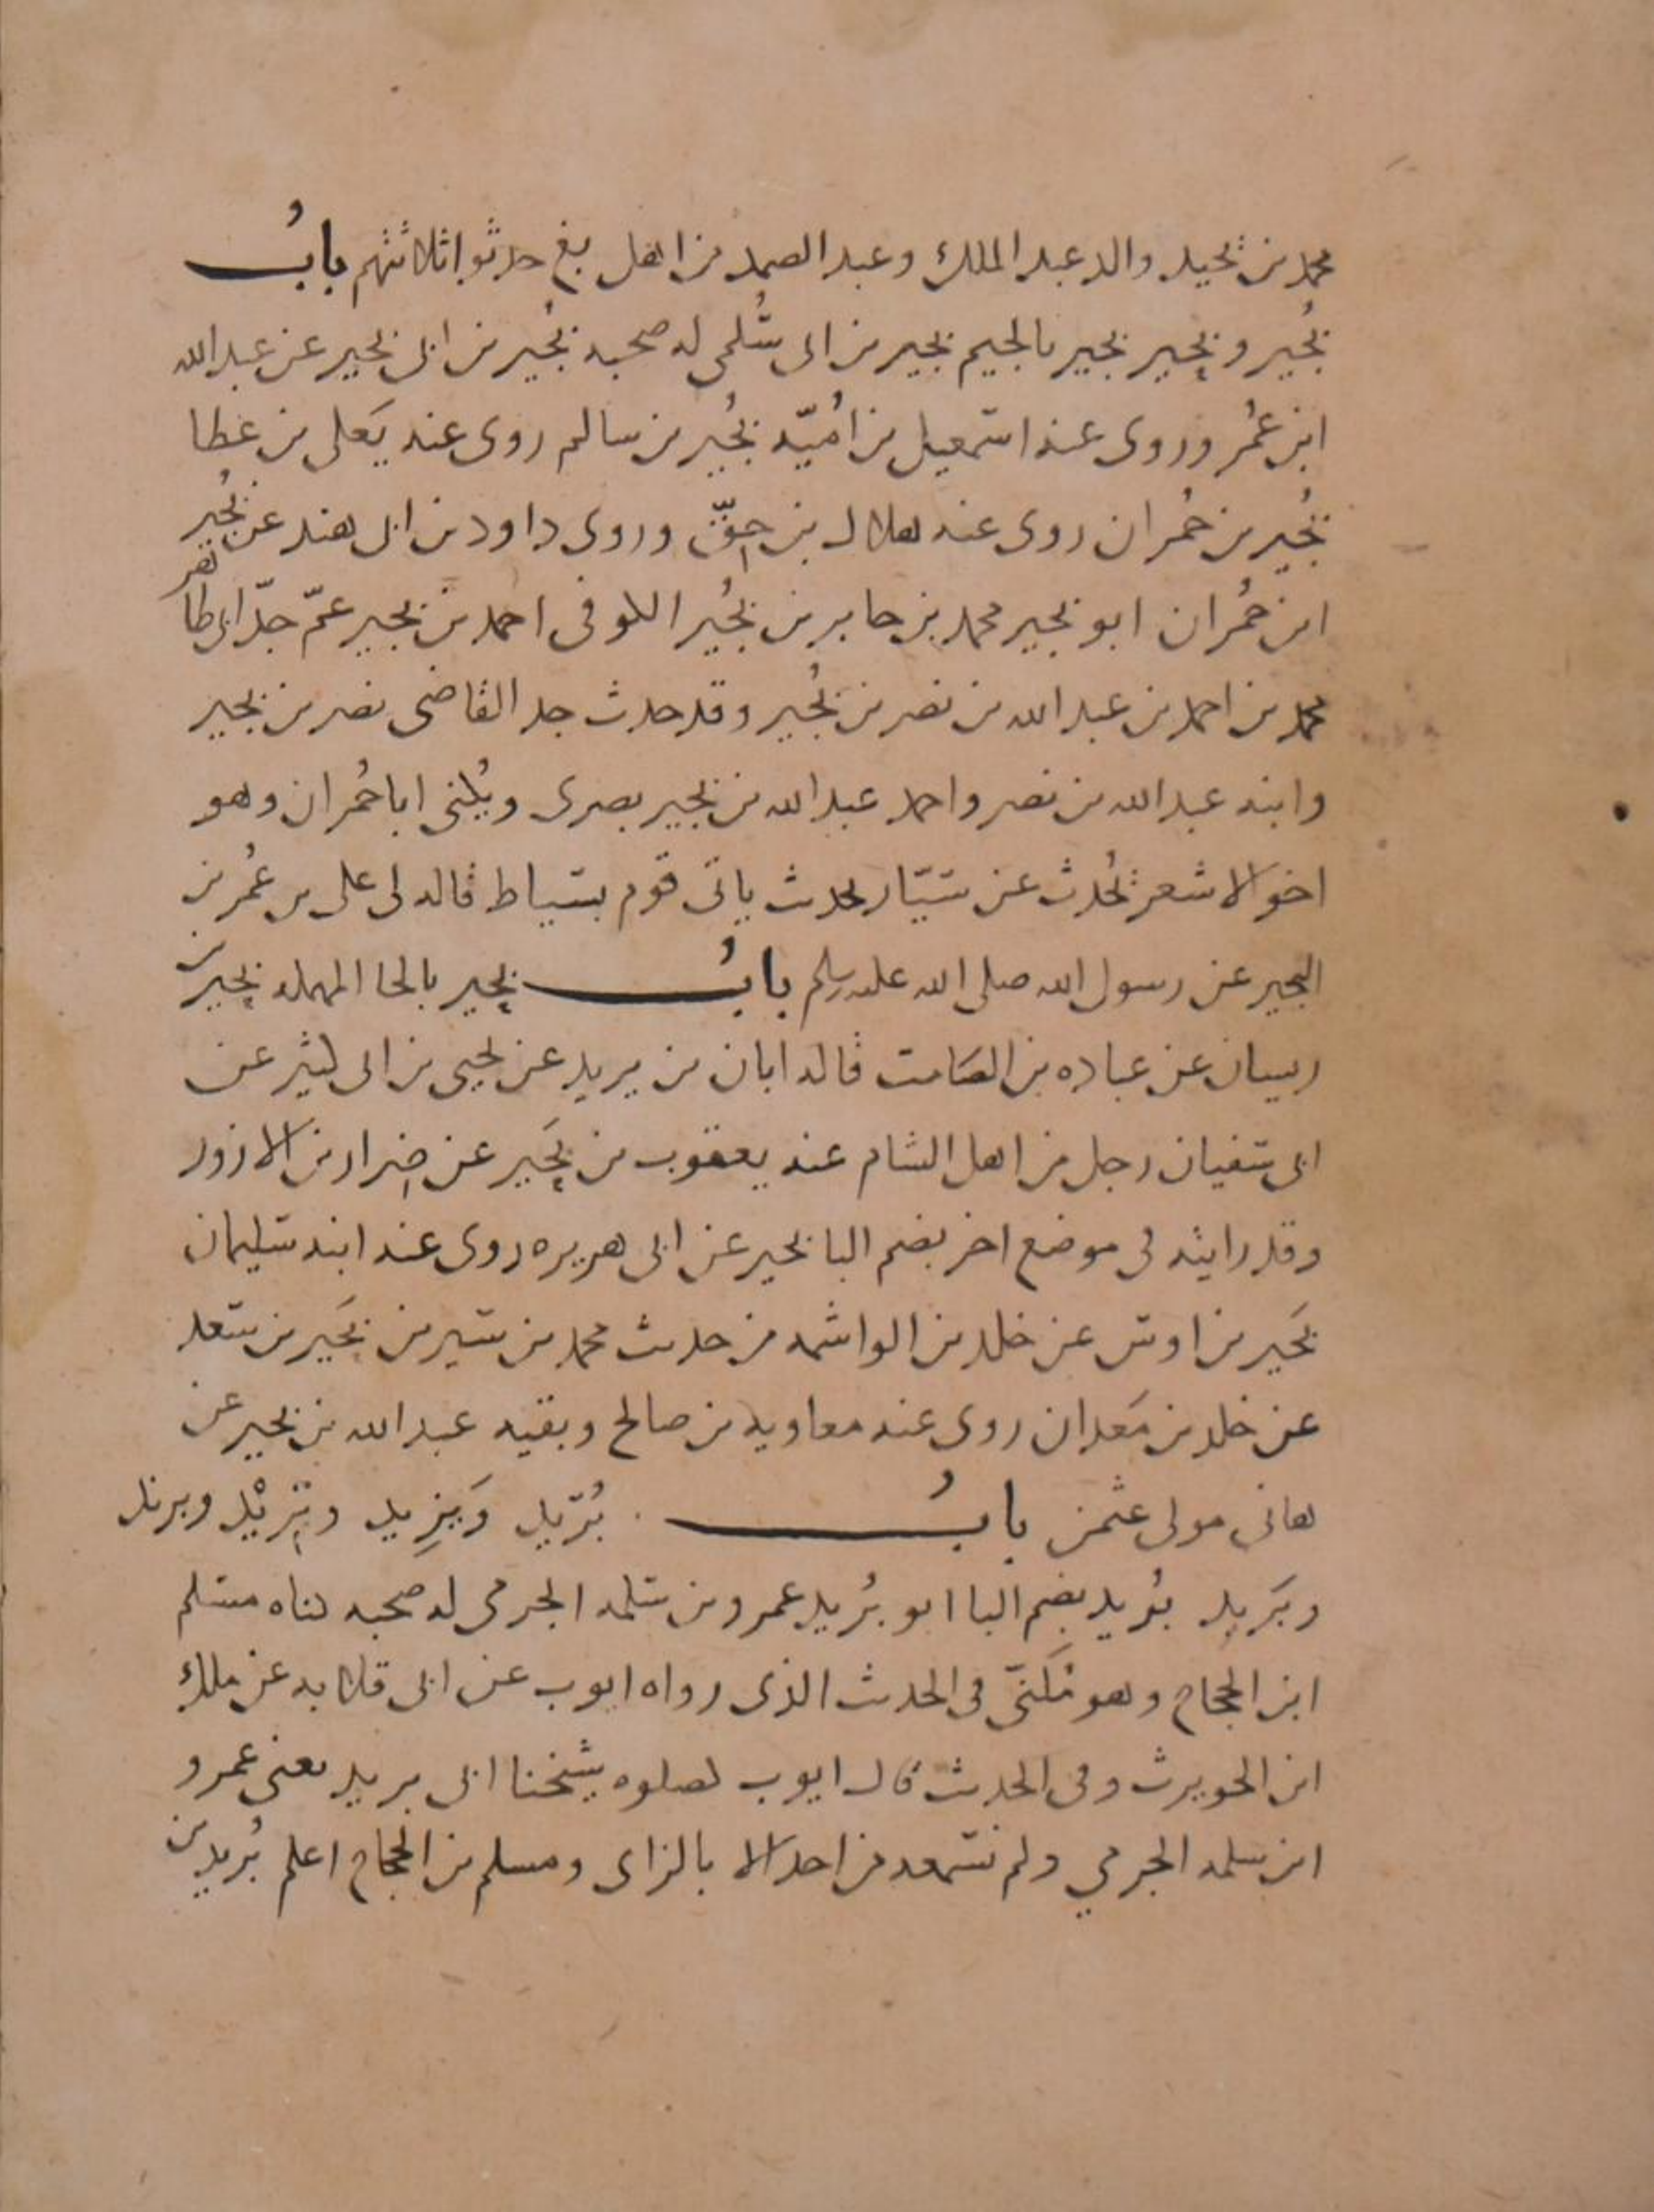 محمد بن نجيد والد عبد الملك وعبد الصمد من اهل بغ حدثوا ثلاثتهم بابُ
بُجير و بحير بجير بالجيم بجير بن ابى سُلمى له صحبه بُجير بن ابى بجير عن عبد الله
ابن عُمر وروى عنه اسمعيل بن اُميّه بُجير بن سالم روى عنه يَعلى بن عطا
بُجير بن حُمران روى عنه هلال بن حِقّ وروى داود بن ابى هند عن بُجير
ابن حُمران ابو بجير محمد بن جابر بن بُجير الكوفى احمد بن بجير عمّ جدّ ابى طا
محمد بن احمد بن عبد الله بن نصر بن بُجير وقد حدث جد القاضى نصر بن بجير
وابنه عبد الله بن نصر واحمد عبد الله بن بجير بصرى ويُكنى ابا حُمران وهو
اخو الاشعر يُحدث عن سيّار بحدث ياتى قوم بسياط قاله لى على بن عُمر بن
البجير عن رسول الله صلى الله عليه وسلم بابُ بحير بالحا المهمله بحير بن
ريسان عن عباده بن الصامت قاله ابان بن يزيد عن يحيى بن ابى كثير عن
ابى سفيان رجل من اهل الشام عنه يعقوب بن بَحير عن ضرار بن الازور
وقد رايته فى موضع اخر بضم البا بحير عن ابى هريره روى عنه ابنه سليمان
بَحير بن اوس عن خلد بن الواشمه من حدث محمد بن سيرين بَحير بن سعد
عن خلد بن مَعدان روى عنه معاويه بن صالح وبقيه عبد الله بن بحير عن
هانى مولى عثمن بابُ بُرَيد وَيَزِيد وتزيْد وبرند
وبَريد بُريد بضم البا ابو بُريد عمرو بن سلمه الجرمى له صحبه كناه مسلم
ابن الحجاج وهو مُكَنّى فى الحدث الذى رواه ايوب عن ابى قلابه عن ملك
ابن الحويرث وفى الحدث قال ايوب كصلوه شيخنا ابى بريد يعنى عمرو
ابن سلمه الجرمي ولم نسمعه من احد الا بالزاى ومسلم بن الحجاج اعلم بُريد بن